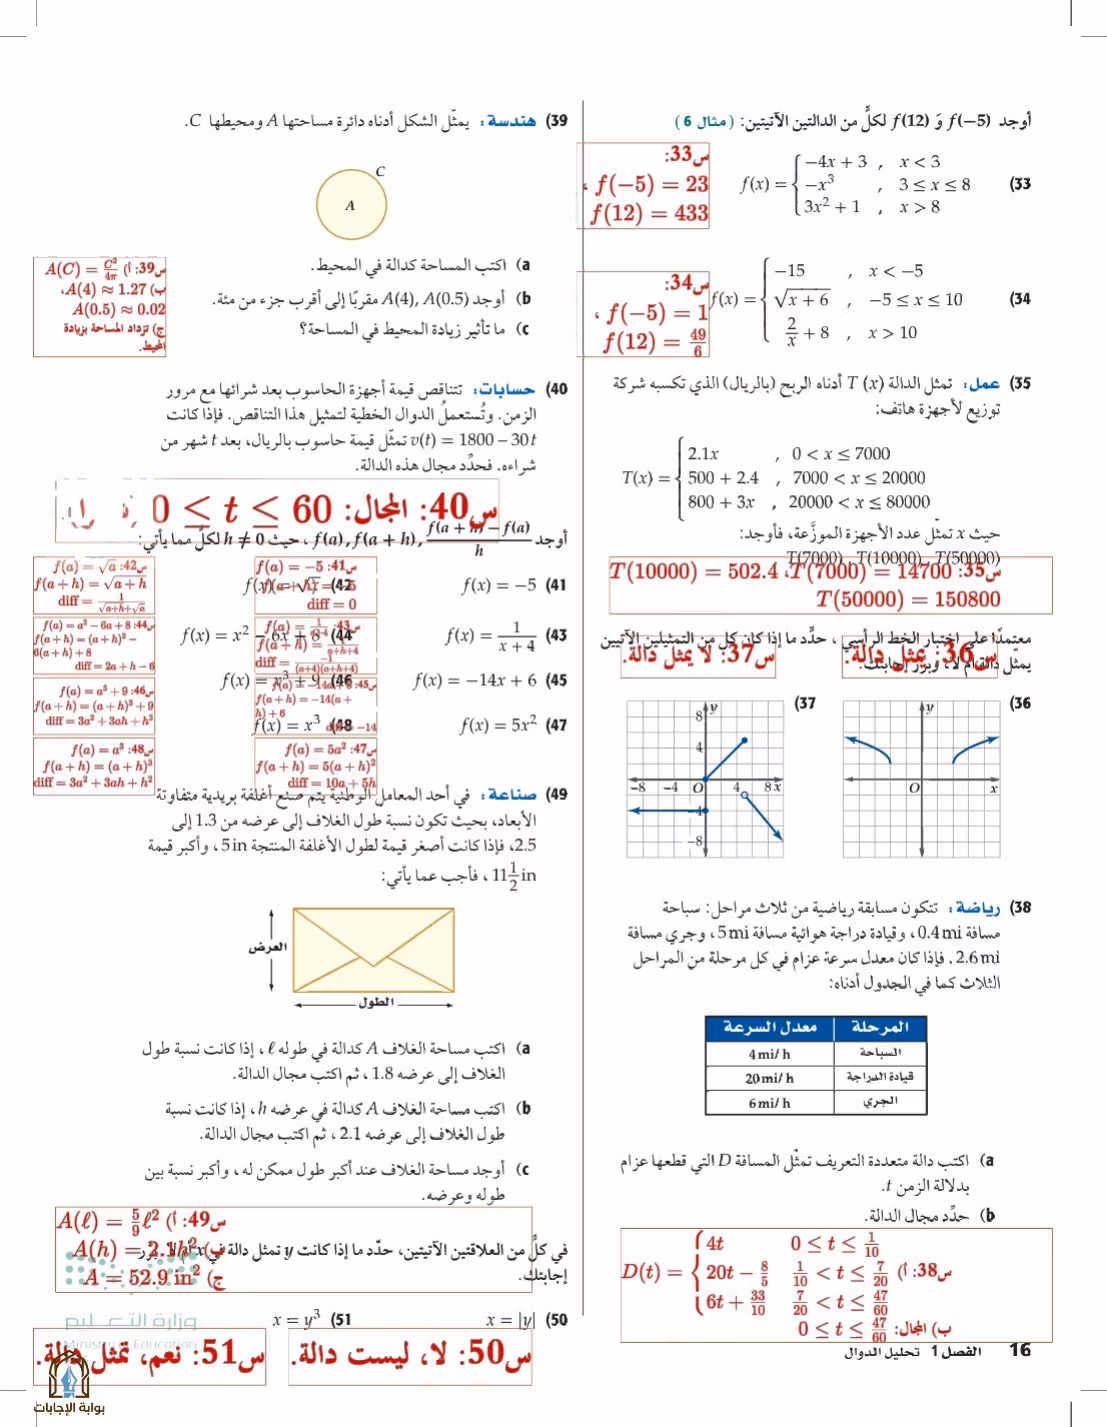 أوجد f(−5) وَ f(12) لكلٍّ من الدالتين الآتيتين: (مثال 6)
33) f(x) = { −4x + 3 , x < 3
−x³ , 3 ≤ x ≤ 8
3x² + 1 , x > 8
س33:
f(−5) = 23 ،
f(12) = 433
34) f(x) = { −15 , x < −5
√(x + 6) , −5 ≤ x ≤ 10
2/x + 8 , x > 10
س34:
f(−5) = 1 ،
f(12) = 49/6
35) عمل: تمثل الدالة T(x) أدناه الربح (بالريال) الذي تكسبه شركة
توزيع لأجهزة هاتف:
T(x) = { 2.1x , 0 < x ≤ 7000
500 + 2.4 , 7000 < x ≤ 20000
800 + 3x , 20000 < x ≤ 80000
حيث x تمثّل عدد الأجهزة الموزَّعة، فأوجد:
T(7000) , T(10000) , T(50000)
س35: T(7000) = 14700، T(10000) = 502.4
T(50000) = 150800
معتمدًا على اختبار الخط الرأسي، حدِّد ما إذا كان كل من التمثيلين الآتيين
يمثّل دالة أم لا، وبرّر إجابتك.
س36: يمثل دالة.
س37: لا يمثل دالة.
36)
y
O
x
37)
y
8
4
−8 −4 O 4 8 x
−4
−8
38) رياضة: تتكون مسابقة رياضية من ثلاث مراحل: سباحة
مسافة 0.4 mi، وقيادة دراجة هوائية مسافة 5 mi، وجري مسافة
2.6 mi. فإذا كان معدل سرعة عزام في كل مرحلة من المراحل
الثلاث كما في الجدول أدناه:
المرحلة معدل السرعة
السباحة 4 mi/h
قيادة الدراجة 20 mi/h
الجري 6 mi/h
a) اكتب دالة متعددة التعريف تمثّل المسافة D التي قطعها عزام
بدلالة الزمن t.
b) حدِّد مجال الدالة.
س38: أ) D(t) = { 4t 0 ≤ t ≤ 1/10
20t − 8/5 1/10 < t ≤ 7/20
6t + 33/10 7/20 < t ≤ 47/60
ب) المجال: 0 ≤ t ≤ 47/60
16 الفصل 1 تحليل الدوال
39) هندسة: يمثّل الشكل أدناه دائرة مساحتها A ومحيطها C.
C
A
a) اكتب المساحة كدالة في المحيط.
b) أوجد A(4), A(0.5) مقربًا إلى أقرب جزء من مئة.
c) ما تأثير زيادة المحيط في المساحة؟
س39: أ) A(C) = C²/4π
ب) A(4) ≈ 1.27،
A(0.5) ≈ 0.02
ج) تزداد المساحة بزيادة
المحيط.
40) حسابات: تتناقص قيمة أجهزة الحاسوب بعد شرائها مع مرور
الزمن. وتُستعملُ الدوال الخطية لتمثيل هذا التناقص. فإذا كانت
v(t) = 1800 − 30t تمثّل قيمة حاسوب بالريال، بعد t شهر من
شراءه. فحدِّد مجال هذه الدالة.
س40: المجال: 0 ≤ t ≤ 60
أوجد f(a), f(a + h), (f(a + h) − f(a))/h، حيث h ≠ 0 لكلٍّ مما يأتي:
41) f(x) = −5
س41: f(a) = −5
diff = 0
42)
س42: f(a) = √a
f(a+h) = √(a + h)
diff = 1/(√(a+h)+√a)
43) f(x) = 1/(x + 4)
س43:
diff = −1/((a+4)(a+h+4))
44) f(x) = x² − 6x + 8
س44: f(a) = a² − 6a + 8
f(a+h) = (a+h)² −
6(a+h) + 8
diff = 2a + h − 6
45) f(x) = −14x + 6
س45:
f(a+h) = −14(a +
h) + 6
46) f(x) = x³ + 9
س46: f(a) = a³ + 9
f(a+h) = (a+h)³ + 9
diff = 3a² + 3ah + h²
47) f(x) = 5x²
س47: f(a) = 5a²
f(a+h) = 5(a+h)²
diff = 10a + 5h
48) f(x) = x³
س48: f(a) = a³
f(a+h) = (a+h)³
diff = 3a² + 3ah + h²
49) صناعة: في أحد المعامل الوطنية يتم صنع أغلفة بريدية متفاوتة
الأبعاد، بحيث تكون نسبة طول الغلاف إلى عرضه من 1.3 إلى
2.5، فإذا كانت أصغر قيمة لطول الأغلفة المنتجة 5 in، وأكبر قيمة
11 1/2 in، فأجب عما يأتي:
العرض
الطول
a) اكتب مساحة الغلاف A كدالة في طوله ℓ، إذا كانت نسبة طول
الغلاف إلى عرضه 1.8، ثم اكتب مجال الدالة.
b) اكتب مساحة الغلاف A كدالة في عرضه h، إذا كانت نسبة
طول الغلاف إلى عرضه 2.1، ثم اكتب مجال الدالة.
c) أوجد مساحة الغلاف عند أكبر طول ممكن له، وأكبر نسبة بين
طوله وعرضه.
س49: أ) A(ℓ) = 5/9 ℓ²
ب) A(h) = 2.1h²
ج) A = 52.9 in²
في كلٍّ من العلاقتين الآتيتين، حدّد ما إذا كانت y تمثل دالة في x
إجابتك.
50) x = |y|
51) x = y³
س50: لا، ليست دالة.
س51: نعم، تمثل دالة.
وزارة التعليم
Ministry of Education
بوابة الإجابات